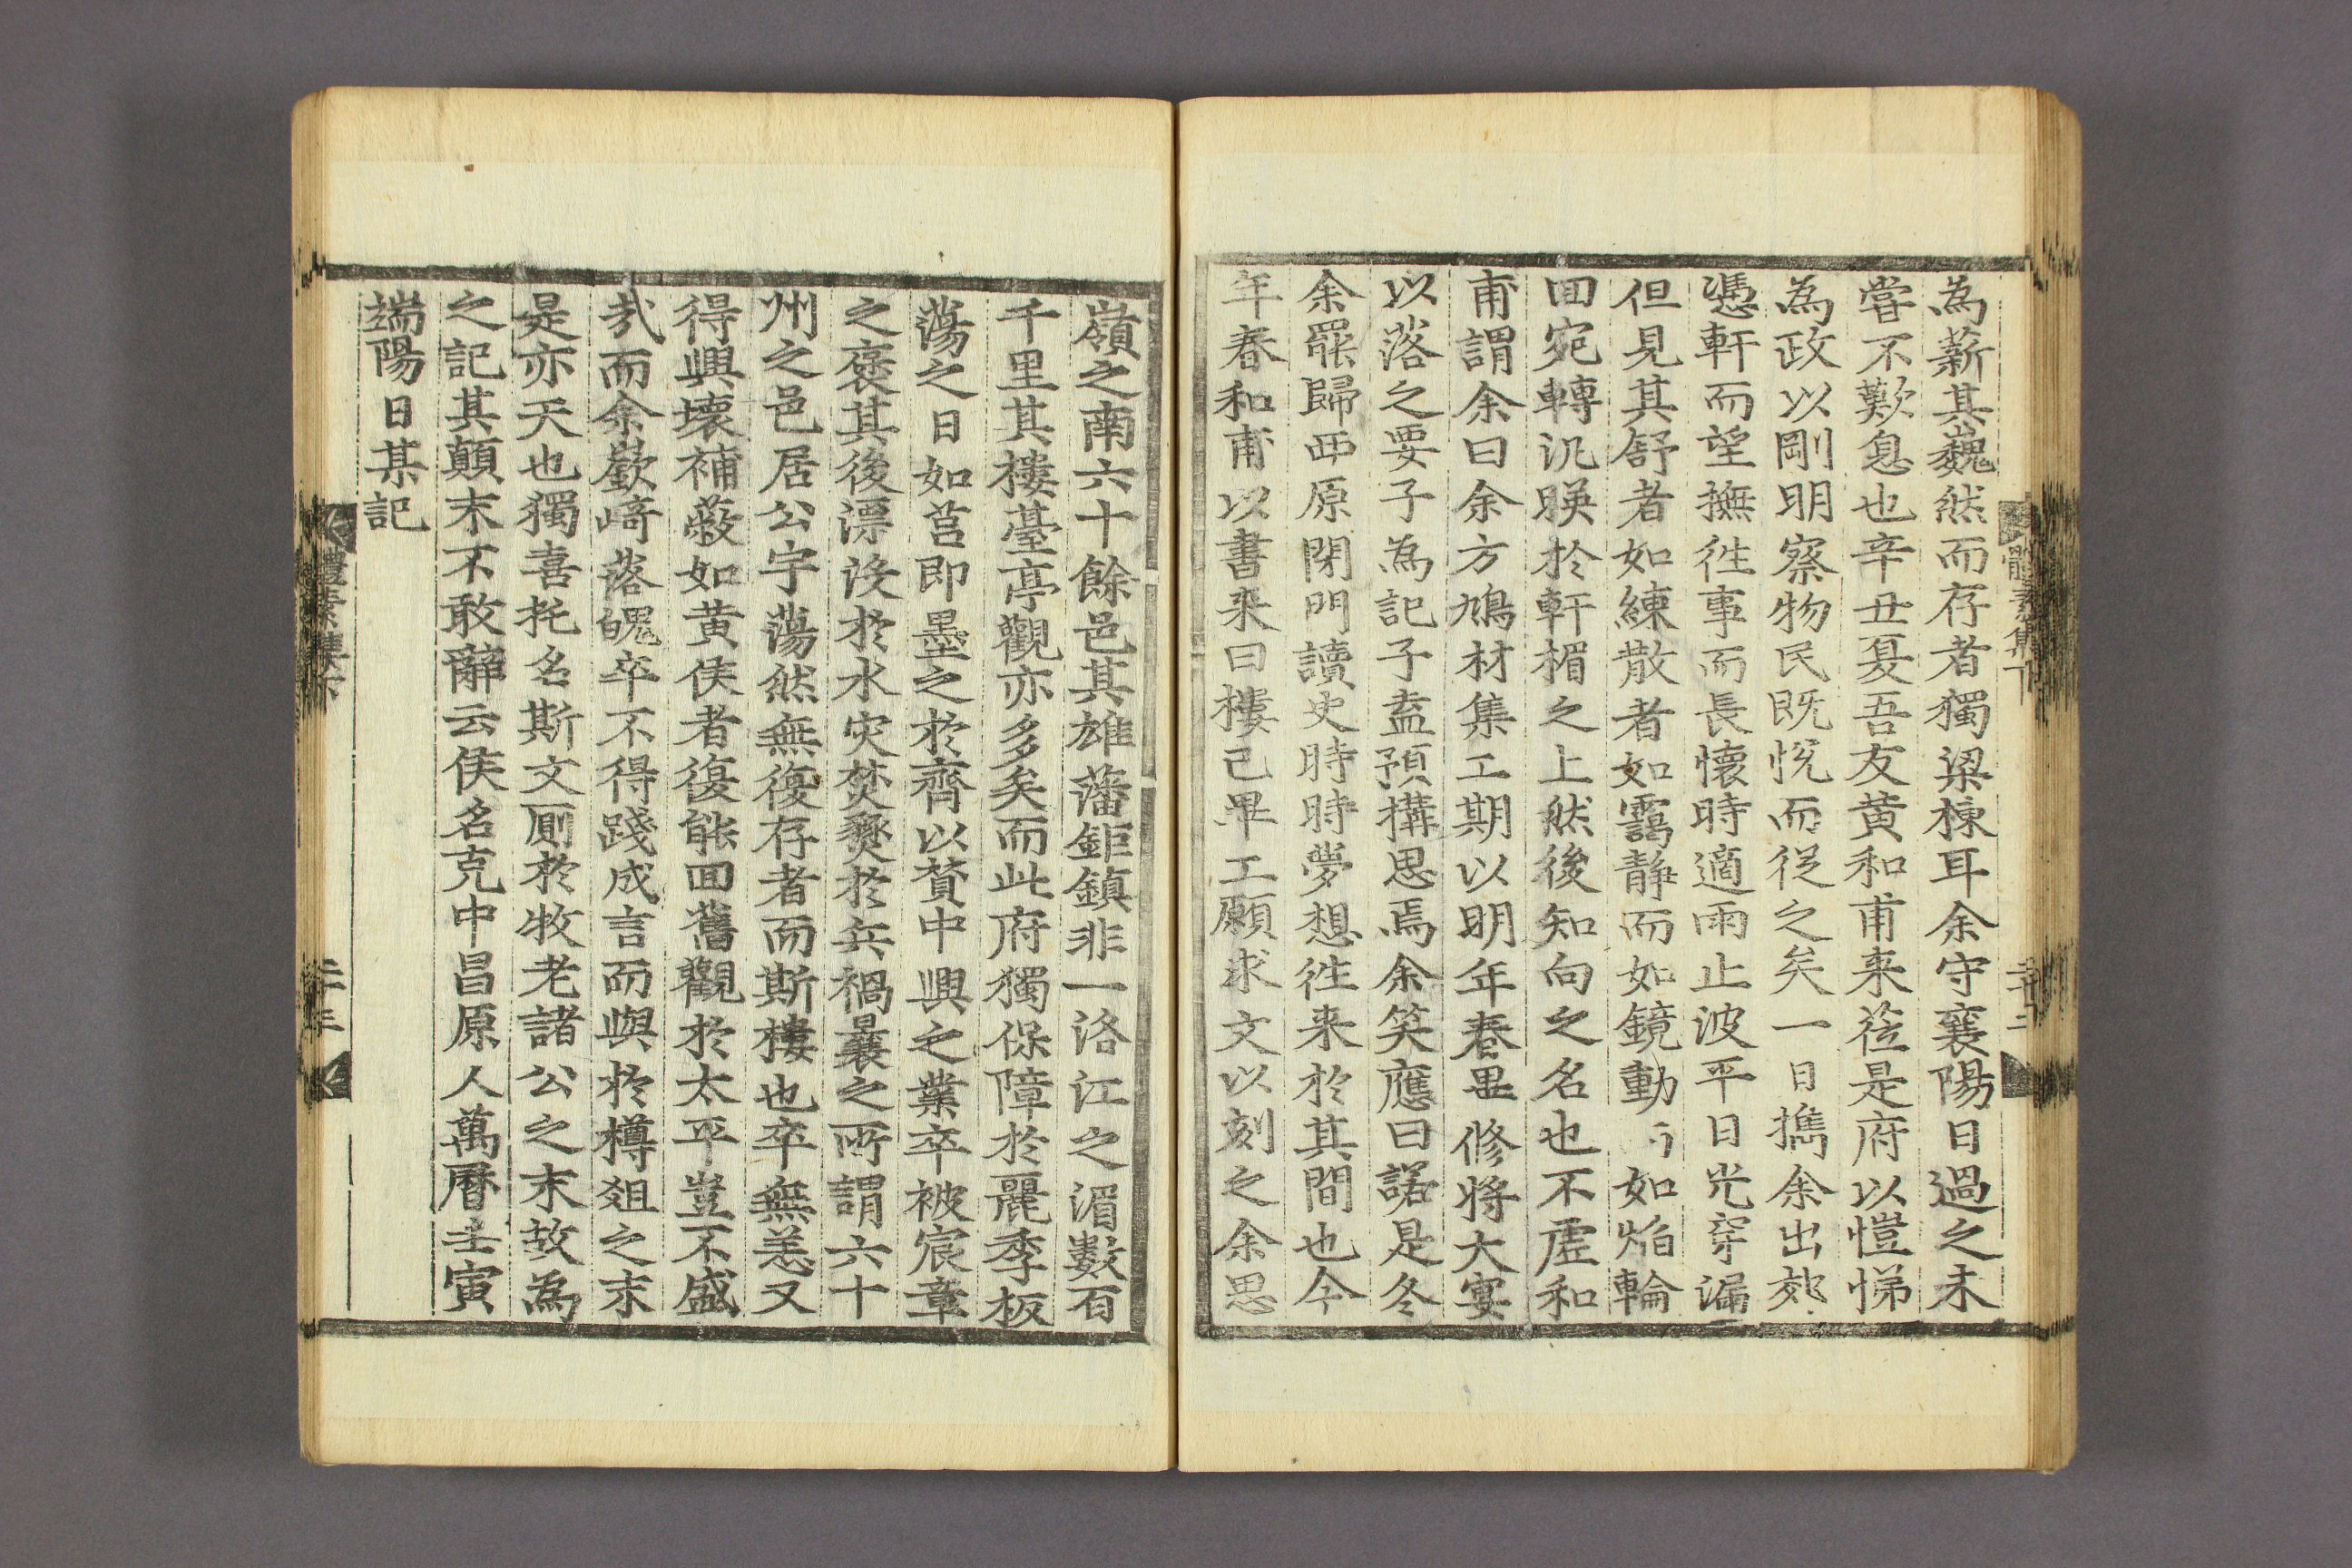 為薪其巍然而存者獨梁棟耳余守襄陽日過之未
嘗不歎息也辛丑夏吾友黃和甫来莅是府以愷悌
為政以剛明察物民既悅而從之矣一日携余出郊
憑軒而望撫徃事而長懷時適雨止波平日光穿漏
但見其舒者如練散者如靄静而如鏡動如焰輪
囬宛轉汎暎於軒楣之上然後知向之名也不虛和
甫謂余曰余方鳩材集工期以明年春畢修將大宴
以落之要子為記子盍預搆思焉余笑應曰諾是冬
余罷歸西原閉門讀史時時夢想徃来於其間也今
年春和甫以書来曰樓已畢工願求文以刻之余思
體素集下
二十二
嶺之南六十餘邑其雄藩鉅鎮非一洛江之湄數百
千里其樓臺亭觀亦多矣而此府獨保障於麗季板
蕩之日如莒即墨之於齊以贊中興之業卒被宸章
之褒其後漂沒於水灾焚爇於兵禍曩之所謂六十
州之邑居公宇蕩然無復存者而斯樓也卒無恙又
得興壞補蔽如黃侯者復能囬舊觀於太平豈不盛
㢤而余嶔﨑落魄卒不得踐成言而與於樽爼之末
是亦天也獨喜托名斯文厠於牧老諸公之末故為
之記其顛末不敢辭云侯名克中昌原人萬曆壬寅
端陽日某記
體素集下
二十三